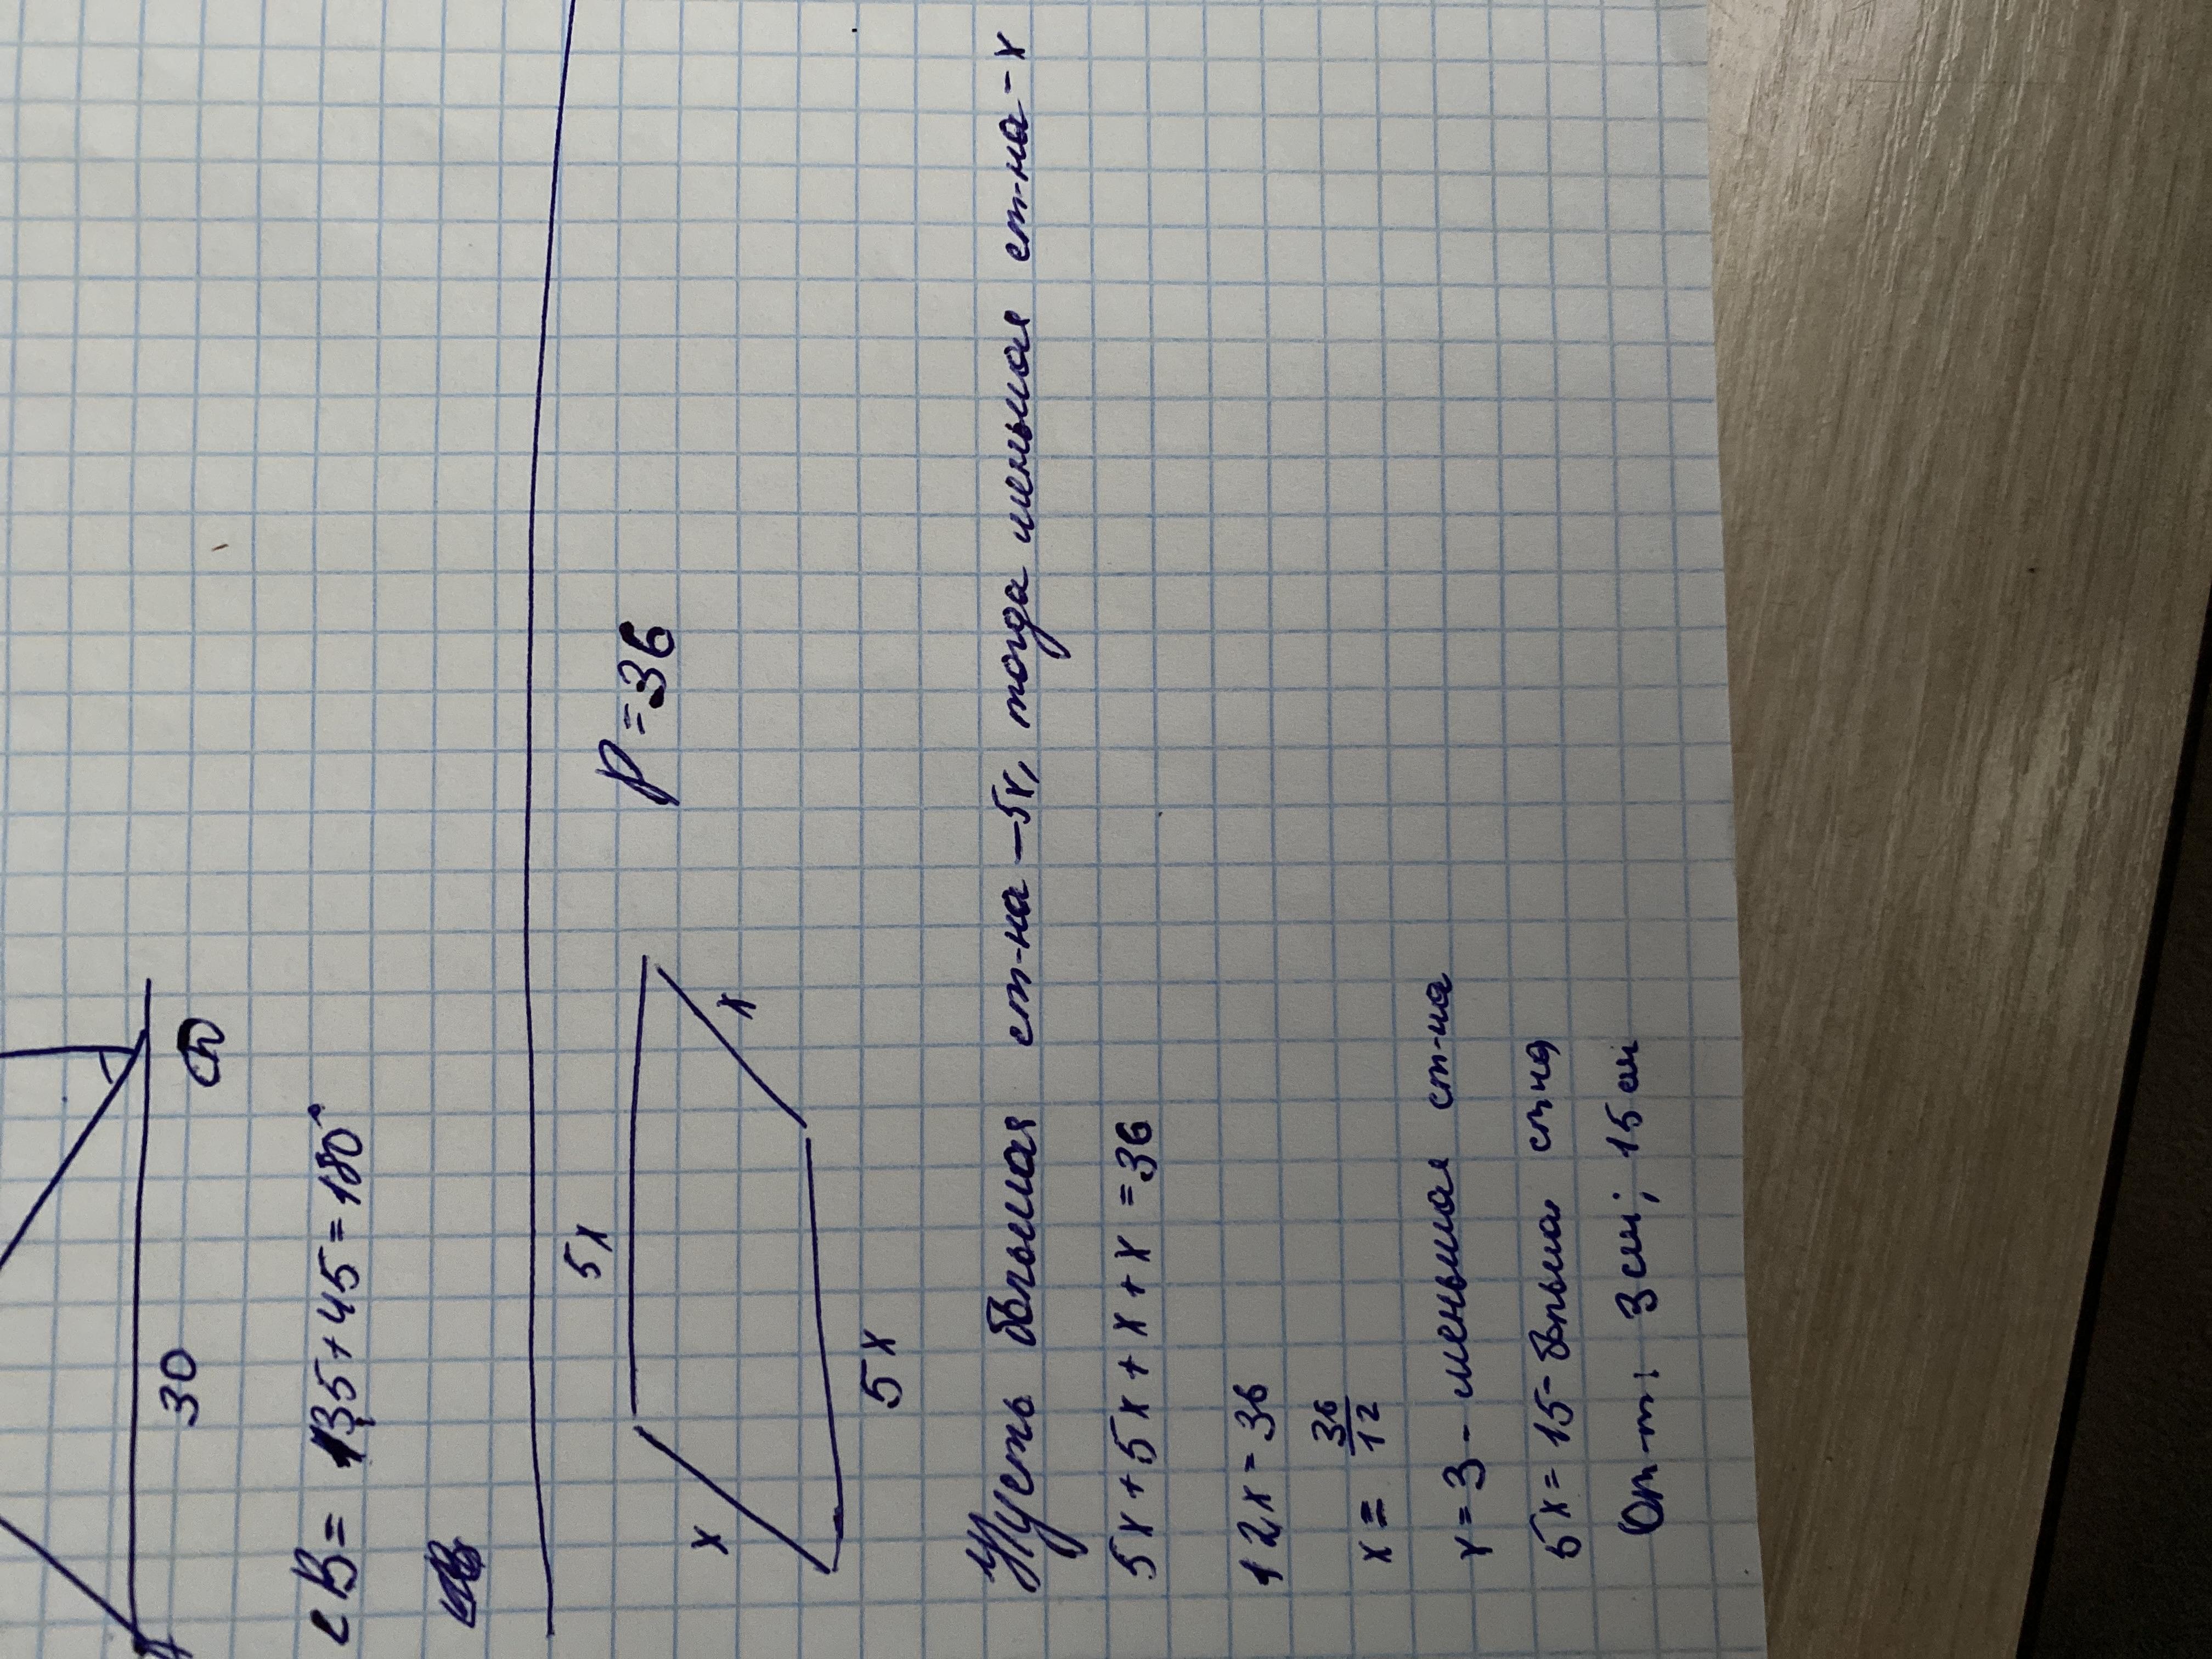 30
D
∠B = 135+45=180°
5x
P=36
x
x
5x
Пусть большая ст-на – 5x, тогда меньшая ст-на - x
5x+5x+x+x=36
12x=36
x=36/12
x=3 - меньшая ст-на
5x=15- больша ст-на
От-т: 3 см; 15 см